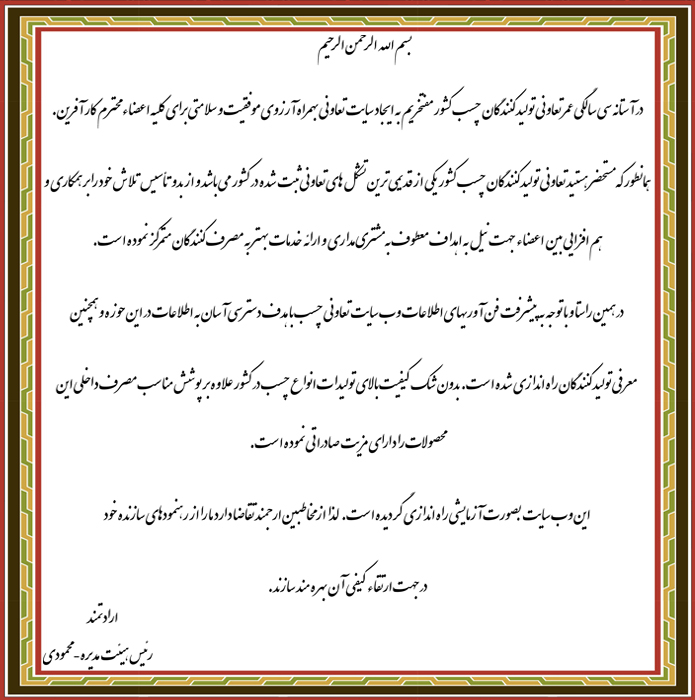 بسم الله الرحمن الرحیم
در آستانه سی سالگی عمر تعاونی تولید کنندگان چسب کشور مفتخریم به ایجاد سایت تعاونی بهمراه آرزوی موفقیت و سلامتی برای کلیه اعضاء محترم کارآفرین.
همانطور که مستحضر هستید تعاونی تولید کنندگان چسب کشور یکی از قدیمی ترین تشکل های تعاونی ثبت شده در کشور می باشد و از بدو تأسیس تلاش خود را بر همکاری و
هم افزایی بین اعضاء جهت نیل به اهداف معطوف به مشتری مداری و ارائه خدمات بهتر به مصرف کنندگان متمرکز نموده است.
در همین راستا و با توجه به پیشرفت فن آوریهای اطلاعات وب سایت تعاونی چسب با هدف دسترسی آسان به اطلاعات در این حوزه و همچنین
معرفی تولید کنندگان راه اندازی شده است. بدون شک کیفیت بالای تولیدات انواع چسب در کشور علاوه بر پوشش مناسب مصرف داخلی این
محصولات را دارای مزیت صادراتی نموده است.
این وب سایت بصورت آزمایشی راه اندازی گردیده است. لذا از مخاطبین ارجمند تقاضا دارد ما را از رهنمودهای سازنده خود
در جهت ارتقاء کیفی آن بهره مند سازند.
ارادتمند
رئیس هیئت مدیره - محمودی